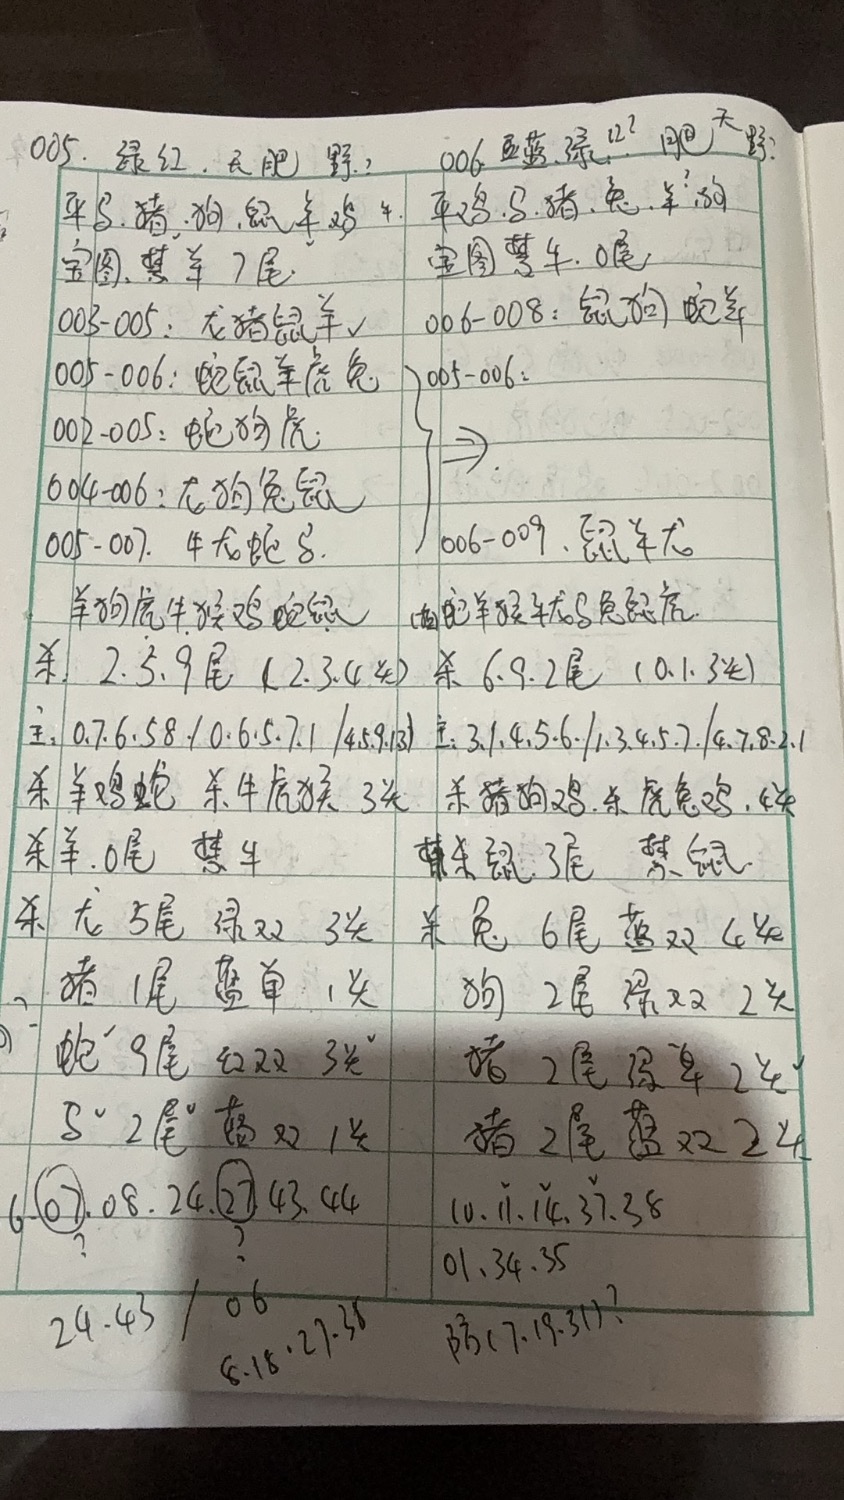 005. 绿红. 天肥 野:
平马.猪.狗.鼠羊鸡 牛.
宝图.禁羊 7尾.
003-005: 龙猪鼠羊✓
005-006: 蛇鼠羊虎兔
002-005: 蛇狗虎.
004-006: 龙狗兔鼠
005-007. 牛龙蛇马.
羊狗虎牛猴鸡蛇鼠
杀. 2.5.9尾 (2.3.4头)
主: 0.7.6.58./0.6.5.7.1/4.5.9.13)
杀羊鸡蛇 杀牛虎猴 3头
杀羊.0尾 禁牛
杀 龙 5尾 绿双 3头
猪 1尾 蓝单 1头
蛇 9尾 红双 3头
马 2尾 蓝双 1头
07.08.24.27.43.44
? ?
24.43 / 06
8.18.27.38
006 蓝.绿 12? 肥 天 野:
平鸡.马.猪.兔.羊?狗
宝图禁牛.0尾
006-008: 鼠狗蛇羊
005-006:
⇒.
006-009. 鼠羊龙
蛇羊猴牛龙马兔鼠虎.
杀 6.9.2尾 (0.1.3头)
主: 3.1.4.5.6./1.3.4.5.7./4.7.8.2.1
杀猪狗鸡.杀虎兔鸡.4头
杀鼠.3尾 禁鼠.
杀 兔 6尾 蓝双 4头
狗 2尾 绿双 2头
猪 2尾 绿单 2头
猪 2尾 蓝双 2头
10.11.14.37.38
01.34.35
防(7.19.31)?